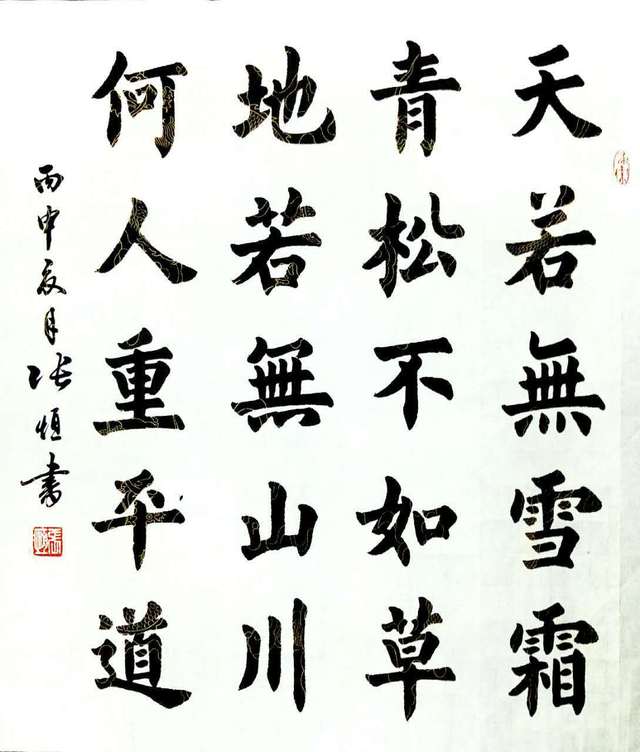 天若無雪霜
青松不如草
地若無山川
何人重平道
丙申夏月張恒書